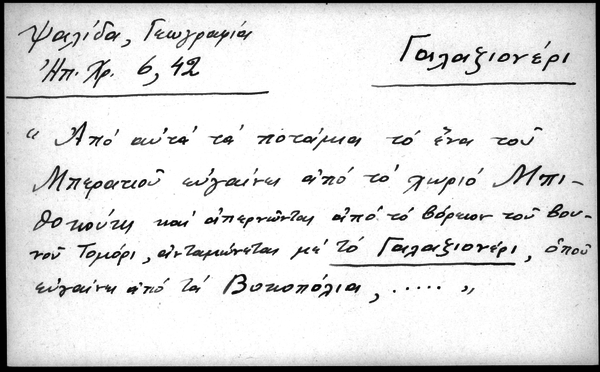 Ψαλίδα, Γεωγραφία
Ἠπ. Χρ. 6, 42
Γαλαξιονέρι
“ Ἀπό αὐτά τά ποτάμια τό ἕνα τοῦ
Μπερατιοῦ εὐγαίνει ἀπό τό χωριό Μπι-
θκούκι καί ἀπερνῶντας ἀπό τό βόρειον τοῦ βου-
νοῦ Τομόρι, ἀνταμώνεται μέ τό Γαλαξιονέρι, ὁποῦ
εὐγαίνει ἀπό τά Βοκοπόλια, ..... ”